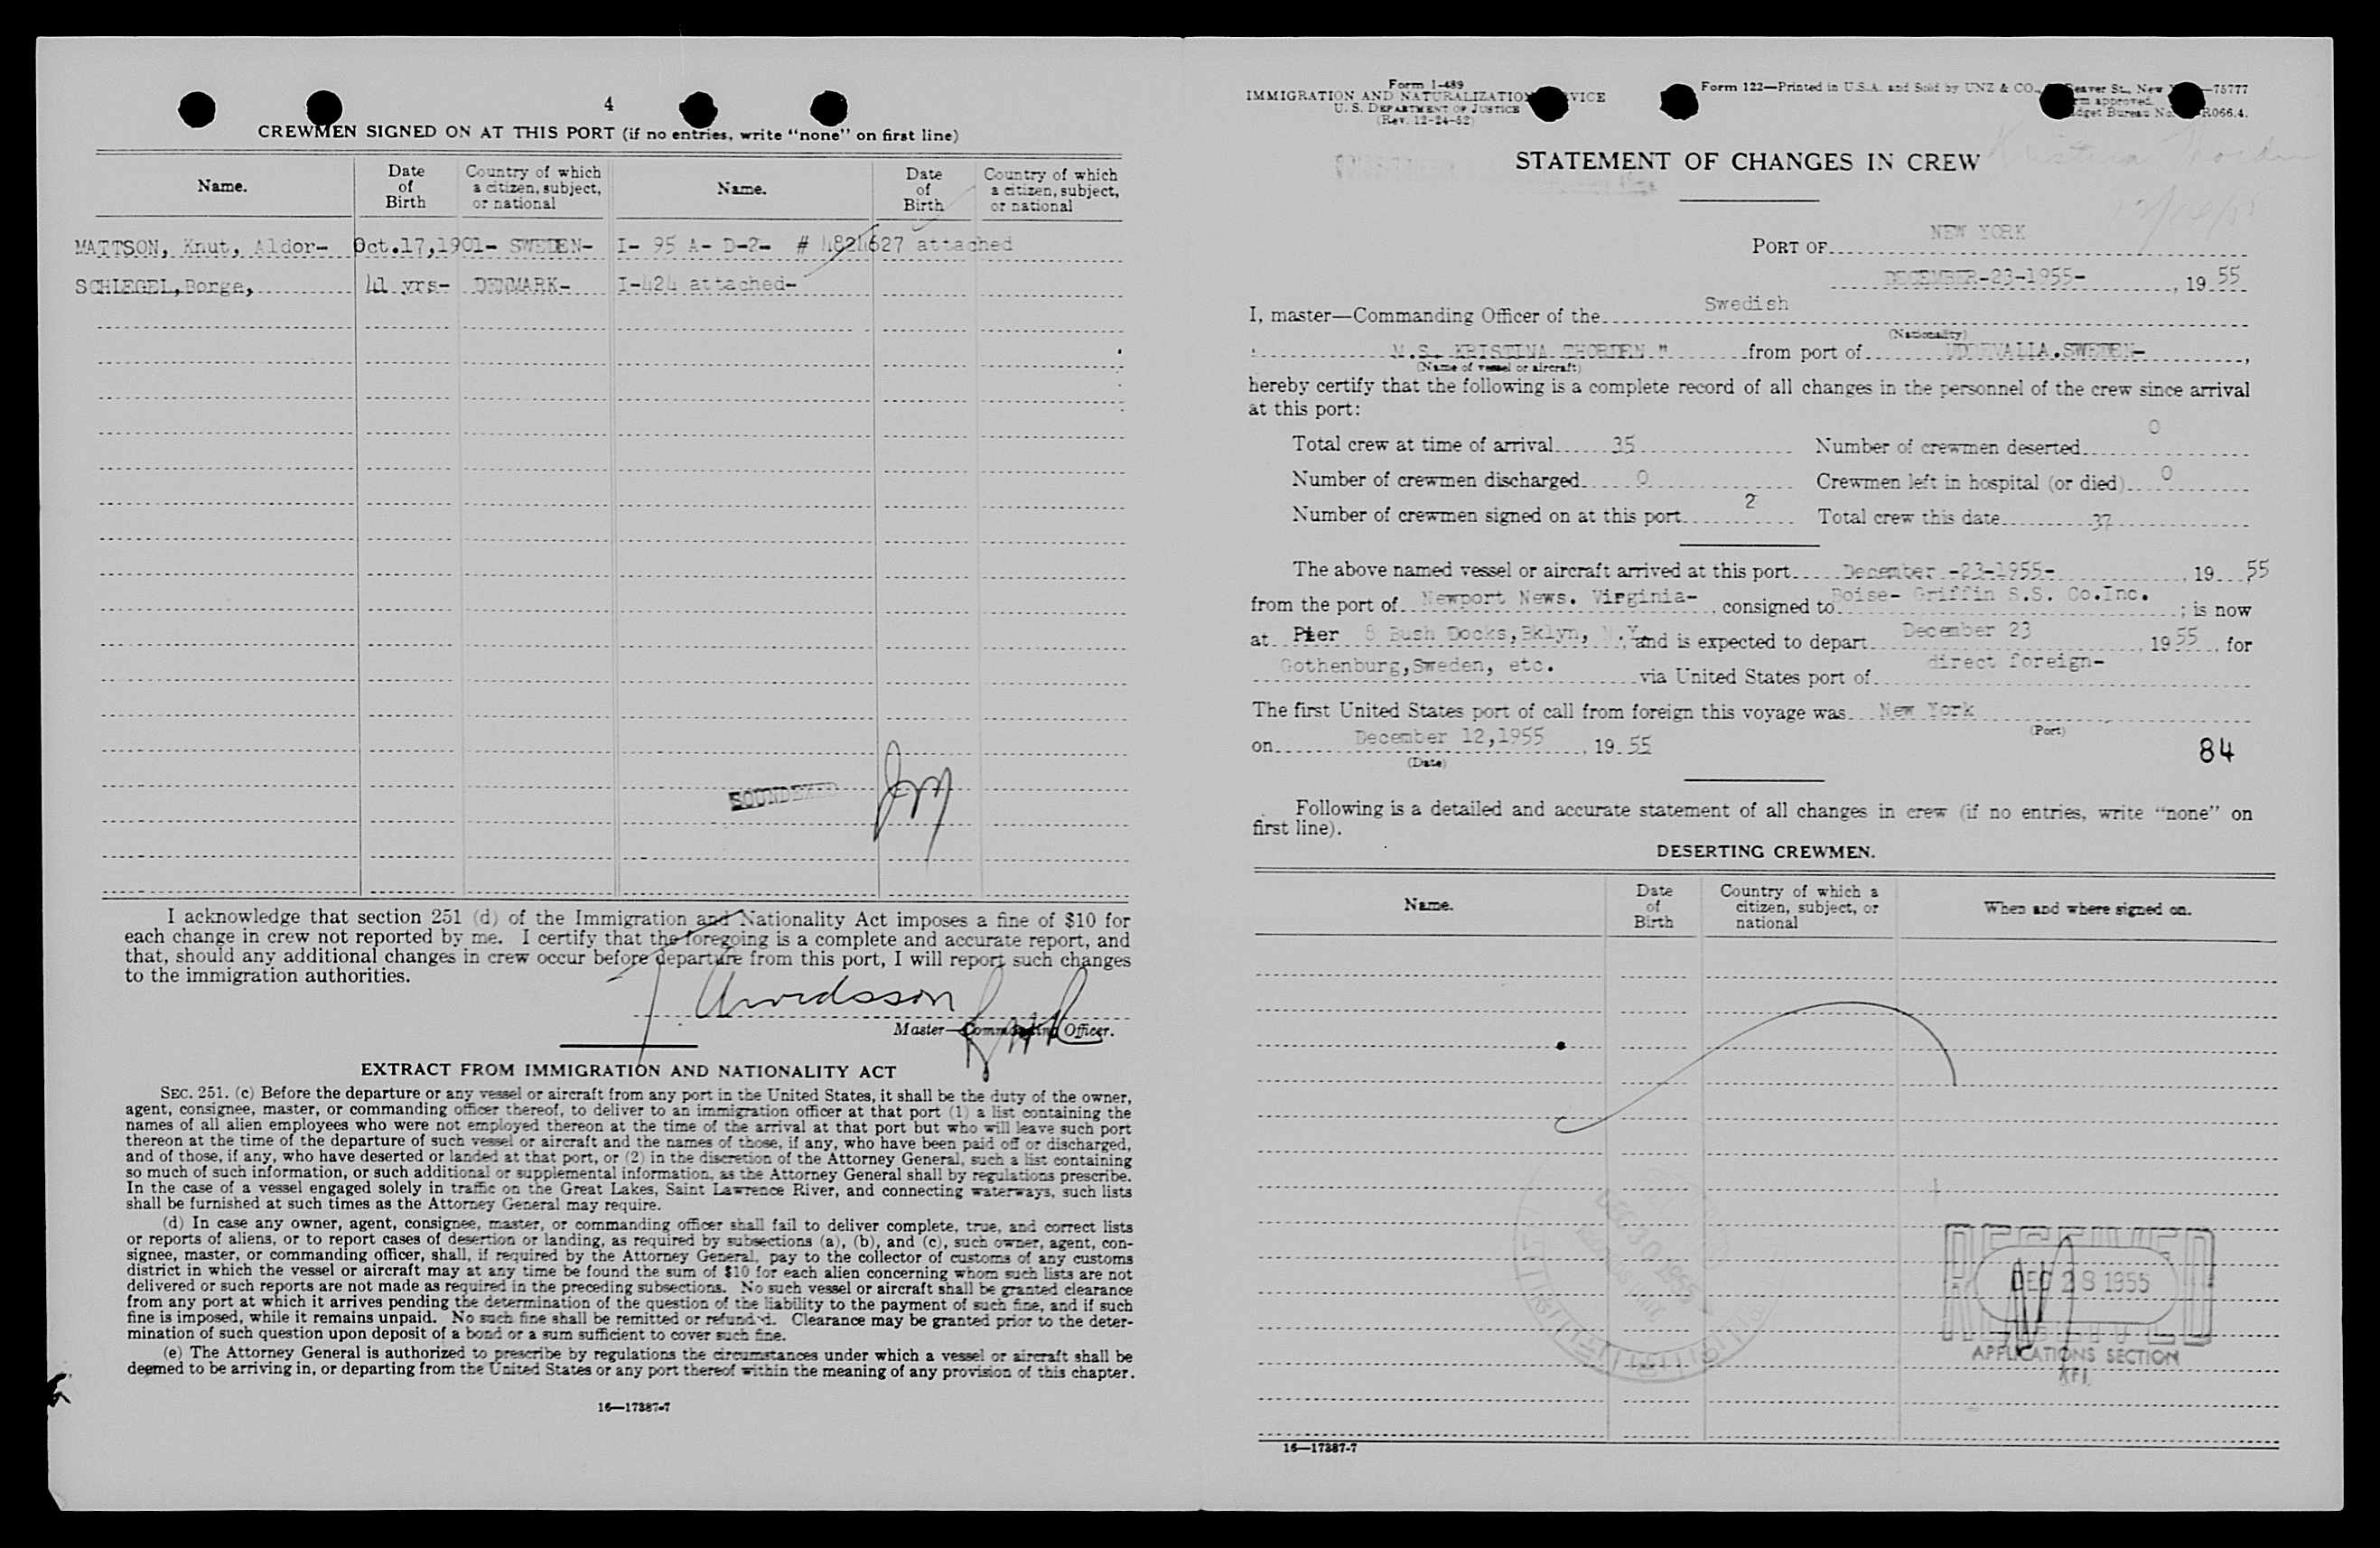 4
CREWMEN SIGNED ON AT THIS PORT (if no entries, write "none" on first line)
Name. Date of Birth Country of which a citizen, subject, or national Name. Date of Birth Country of which a citizen, subject, or national
MATTSON, Knut, Aldor- Oct.17,1901- SWEDEN- I- 95 A- D-2- # 4824627 attached
SCHLEGEL,Borge, 41 yrs- DENMARK- I-424 attached-
SOUNDEXED
I acknowledge that section 251 (d) of the Immigration and Nationality Act imposes a fine of $10 for
each change in crew not reported by me. I certify that the foregoing is a complete and accurate report, and
that, should any additional changes in crew occur before departure from this port, I will report such changes
to the immigration authorities.
Arvidsson
Master—Commanding Officer.
EXTRACT FROM IMMIGRATION AND NATIONALITY ACT
SEC. 251. (c) Before the departure or any vessel or aircraft from any port in the United States, it shall be the duty of the owner,
agent, consignee, master, or commanding officer thereof, to deliver to an immigration officer at that port (1) a list containing the
names of all alien employees who were not employed thereon at the time of the arrival at that port but who will leave such port
thereon at the time of the departure of such vessel or aircraft and the names of those, if any, who have been paid off or discharged,
and of those, if any, who have deserted or landed at that port, or (2) in the discretion of the Attorney General, such a list containing
so much of such information, or such additional or supplemental information, as the Attorney General shall by regulations prescribe.
In the case of a vessel engaged solely in traffic on the Great Lakes, Saint Lawrence River, and connecting waterways, such lists
shall be furnished at such times as the Attorney General may require.
(d) In case any owner, agent, consignee, master, or commanding officer shall fail to deliver complete, true, and correct lists
or reports of aliens, or to report cases of desertion or landing, as required by subsections (a), (b), and (c), such owner, agent, con-
signee, master, or commanding officer, shall, if required by the Attorney General, pay to the collector of customs of any customs
district in which the vessel or aircraft may at any time be found the sum of $10 for each alien concerning whom such lists are not
delivered or such reports are not made as required in the preceding subsections. No such vessel or aircraft shall be granted clearance
from any port at which it arrives pending the determination of the question of the liability to the payment of such fine, and if such
fine is imposed, while it remains unpaid. No such fine shall be remitted or refund d. Clearance may be granted prior to the deter-
mination of such question upon deposit of a bond or a sum sufficient to cover such fine.
(e) The Attorney General is authorized to prescribe by regulations the circumstances under which a vessel or aircraft shall be
deemed to be arriving in, or departing from the United States or any port thereof within the meaning of any provision of this chapter.
16—17387-7
Form I-489
IMMIGRATION AND NATURALIZATION VICE
U. S. DEPARTMENT OF JUSTICE
(Rev. 12-24-52)
Form 122—Printed in U.S.A. and Sold by UNZ & CO., eaver St., New —75777
m approved.
dget Bureau No. R066.4.
Kristina Thorden
STATEMENT OF CHANGES IN CREW
PORT OF NEW YORK
DECEMBER-23-1955- , 19 55
I, master—Commanding Officer of the Swedish
(Nationality)
M.S. KRISTINA THORDEN " from port of UDDEVALLA.SWEDEN- ,
(Name of vessel or aircraft)
hereby certify that the following is a complete record of all changes in the personnel of the crew since arrival
at this port:
Total crew at time of arrival 35 Number of crewmen deserted 0
Number of crewmen discharged 0 Crewmen left in hospital (or died) 0
Number of crewmen signed on at this port 2 Total crew this date 37
The above named vessel or aircraft arrived at this port December -23-1955- , 19 55
from the port of Newport News. Virginia- , consigned to Boise- Griffin S.S. Co.Inc. ; is now
at Pier 8 Bush Docks,Bklyn, N.Y. , and is expected to depart December 23 , 19 55 , for
Gothenburg,Sweden, etc. via United States port of direct foreign-
The first United States port of call from foreign this voyage was New York
(Port)
on December 12,1955 , 19 55
(Date)
84
Following is a detailed and accurate statement of all changes in crew (if no entries, write "none" on
first line).
DESERTING CREWMEN.
Name. Date of Birth Country of which a citizen, subject, or national When and where signed on.
RECEIVED
DEC 28 1955
RECEIVED
APPLICATIONS SECTION
16—17387-7